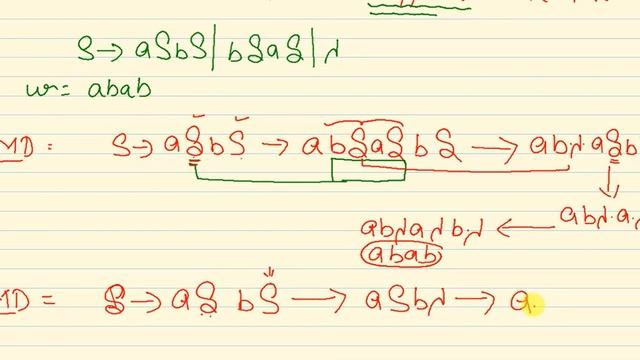 S → aSbS | bSaS | λ
w = abab
MD : S → aSbS → abSaSbS → abλ.aSb
abλ.a.λ
abλaλbλ
abab
MD = S → aSbS → aSbλ → a.